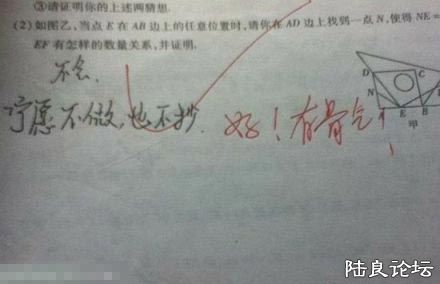 ③请证明你的上述两猜想.
(2)如图乙,当点 E 在 AB 边上的任意位置时,请你在 AD 边上找到一点 N,使得 NE=
EF 有怎样的数量关系,并证明.
不会.
宁愿不做,也不抄.
好!有骨气!
D C
N
E B
甲
陆良论坛